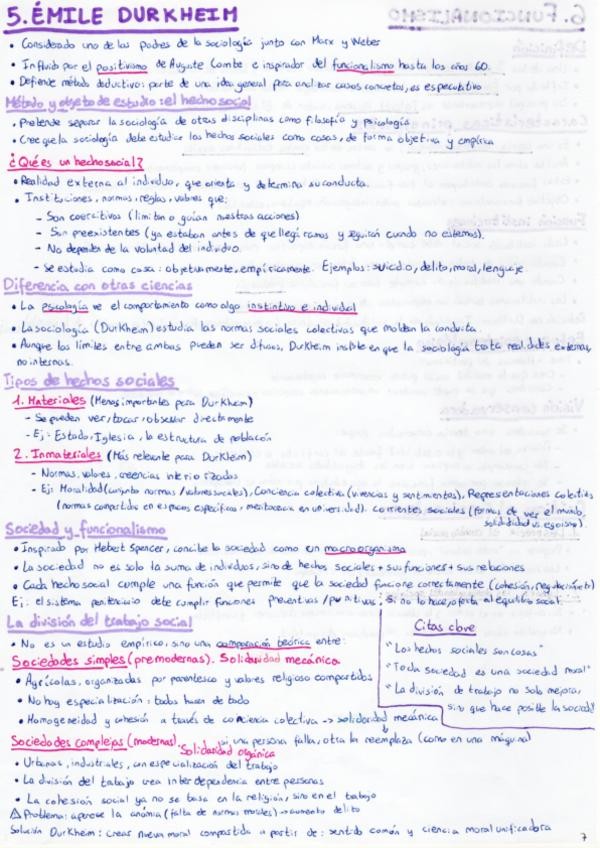 5. ÉMILE DURKHEIM
• Considerado uno de los padres de la sociología junto con Marx y Weber
• Influido por el positivismo de Auguste Comte e inspirador del funcionalismo hasta los años 60.
• Defiende método deductivo: parte de una idea general para analizar casos concretos, es especulativo
Método y objeto de estudio: el hecho social
• Pretende separar la sociología de otras disciplinas como filosofía y psicología
• Cree que la sociología debe estudiar los hechos sociales como cosas, de forma objetiva y empírica
¿Qué es un hecho social?
• Realidad externa al individuo, que orienta y determina su conducta.
• Instituciones, normas, reglas, valores que:
- Son coercitivos (limitan o guían nuestras acciones)
- Son preexistentes (ya estaban antes de que llegáramos y seguirán cuando no estemos).
- No dependen de la voluntad del individuo.
- Se estudia como cosa: objetivamente, empíricamente. Ejemplos: suicidio, delito, moral, lenguaje.
Diferencia con otras ciencias
• La psicología ve el comportamiento como algo instintivo e individual
• La sociología (Durkheim) estudia las normas sociales colectivas que moldean la conducta.
• Aunque los límites entre ambas pueden ser difusos, Durkheim insiste en que la sociología trata realidades externas,
no internas.
Tipos de hechos sociales
1. Materiales (Menos importantes para Durkheim)
- Se pueden ver, tocar, observar directamente
- Ej: Estado, Iglesia, la estructura de población
2. Inmateriales (Más relevante para Durkheim)
- Normas, valores, creencias interiorizadas
- Ej: Moralidad (conjunto normas/valores sociales), Conciencia colectiva (vivencias y sentimientos), Representaciones colectivas
(normas compartidas en espacios específicos, meritocracia en universidad). corrientes sociales (formas de ver el mundo,
solidaridad vs egoísmo).
Sociedad y funcionalismo
• Inspirado por Hebert Spencer, concibe la sociedad como un macroorganismo
• La sociedad no es solo la suma de individuos, sino de hechos sociales + sus funciones + sus relaciones
• Cada hecho social cumple una función que permite que la sociedad funcione correctamente (cohesión,
Ej: el sistema penitenciario debe cumplir funciones preventivas/punitivas, si no lo hace, afecta al equilibrio social.
La división del trabajo social
• No es un estudio empírico, sino una comparación teórica entre:
Sociedades simples (premodernas). Solidaridad mecánica
• Agrícolas, organizadas por parentesco y valores religioso compartidos
• No hay especialización: todos hacen de todo
• Homogeneidad y cohesión a través de conciencia colectiva -> solidaridad mecánica
si una persona falla, otra la reemplaza (como en una máquina)
Citas clave
"Los hechos sociales son cosas"
"Toda sociedad es una sociedad moral"
"La división de trabajo no solo mejora,
sino que hace posible la sociedad"
Sociedades complejas (modernas). Solidaridad orgánica
• Urbanas, industriales, con especialización del trabajo
• La división del trabajo crea interdependencia entre personas
• La cohesión social ya no se basa en la religión, sino en el trabajo
⚠ Problema: aparece la anomia (falta de normas morales) -> aumento delito
Solución Durkheim: crear nueva moral compartida a partir de: sentido común y ciencia moral unificadora
7